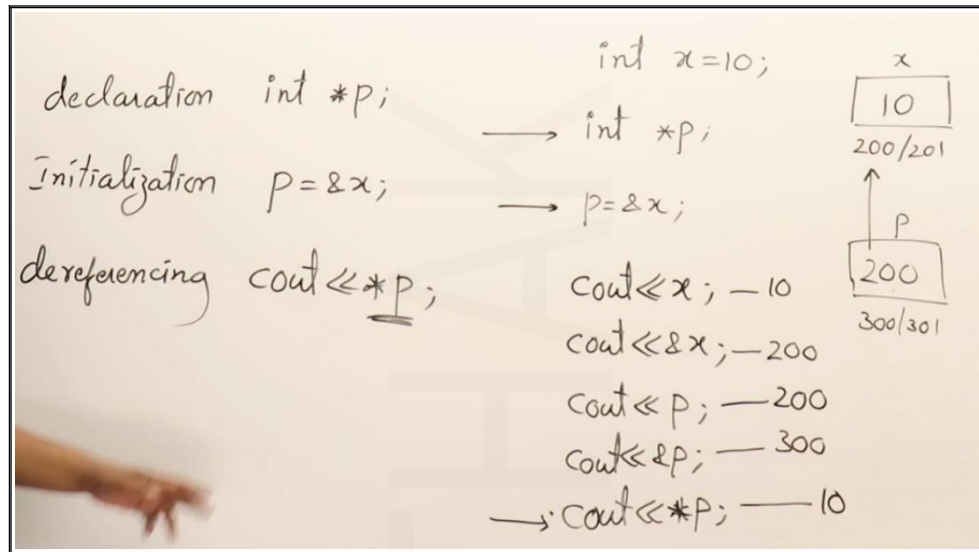 declaration int *p;
Initialization p=&x;
dereferencing cout<<*p;
int x=10;
→ int *p;
→ p=&x;
cout<<x; — 10
cout<<&x; — 200
cout<<p; — 200
cout<<&p; — 300
→ cout<<*p; — 10
x
10
200/201
p
200
300/301